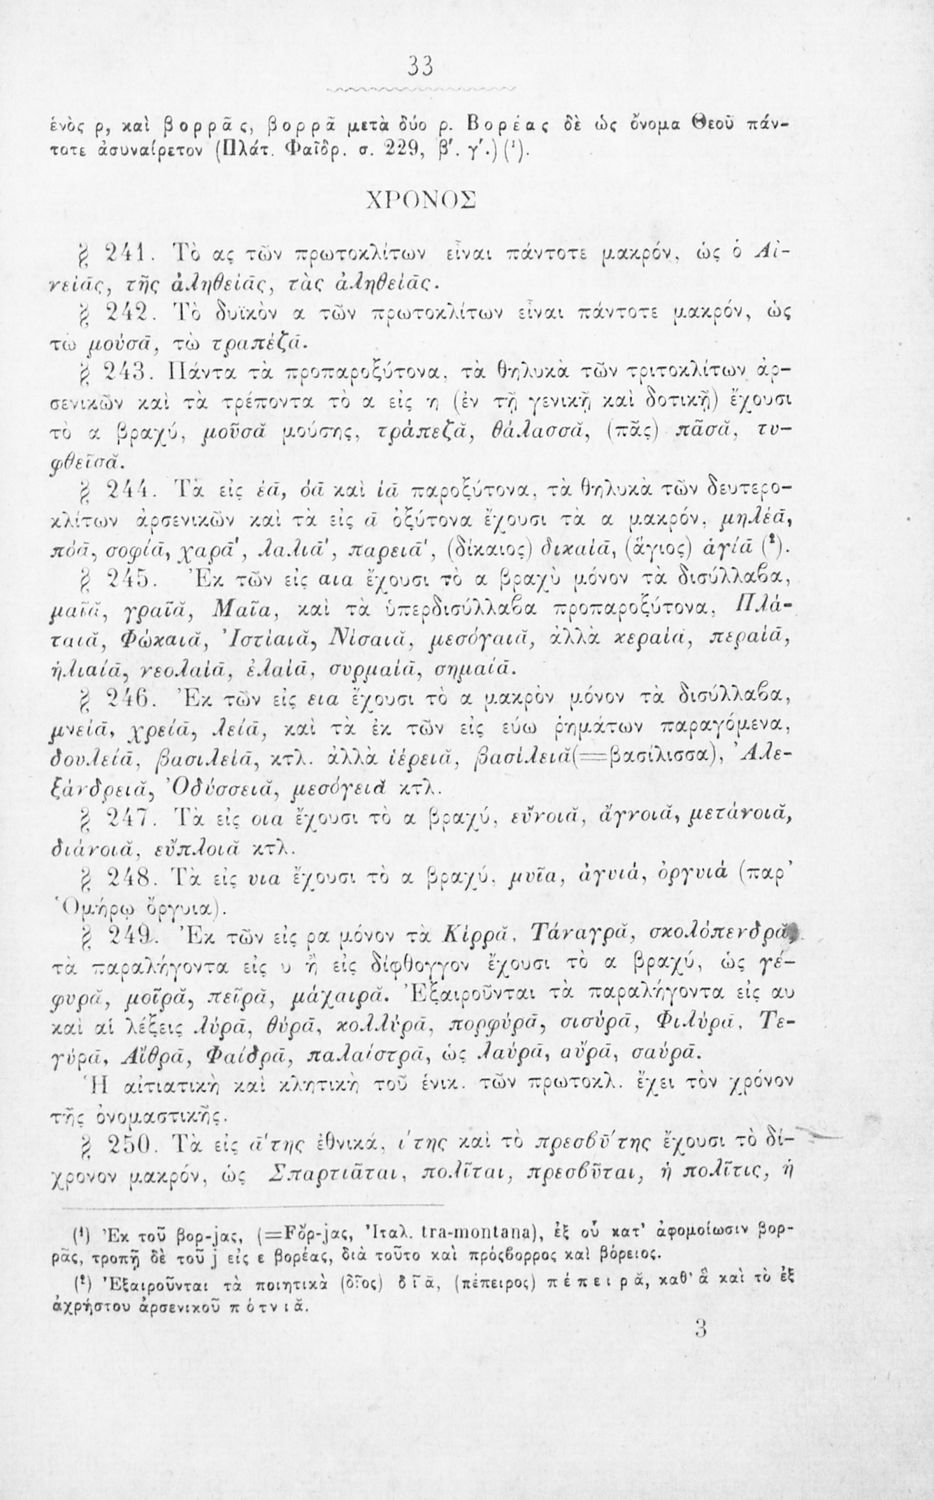 33
ἑνὸς ρ, καὶ βορρᾶς, βορρᾶ μετὰ δύο ρ. Βορέας δὲ ὡς ὄνομα Θεοῦ πάν-
τοτε ἀσυναίρετον (Πλάτ. Φαῖδρ. σ. 229, β'. γ'.) (¹).
ΧΡΟΝΟΣ
§ 241. Τὸ ας τῶν πρωτοκλίτων εἶναι πάντοτε μακρόν, ὡς ὁ Αἰ-
νείᾱς, τῆς ἀληθείᾱς, τὰς ἀληθείᾱς.
§ 242. Τὸ δυϊκὸν α τῶν πρωτοκλίτων εἶναι πάντοτε μακρόν, ὡς
τὼ μούσᾱ, τὼ τραπέζᾱ.
§ 243. Πάντα τὰ προπαροξύτονα, τὰ θηλυκὰ τῶν τριτοκλίτων ἀρ-
σενικῶν καὶ τὰ τρέποντα τὸ α εἰς η (ἐν τῇ γενικῇ καὶ δοτικῇ) ἔχουσι
τὸ α βραχύ, μοῦσᾰ μούσης, τράπεζᾰ, θάλασσᾰ, (πᾶς) πᾶσᾰ, τυ-
φθεῖσᾰ.
§ 244. Τὰ εἰς έᾱ, όᾱ καὶ ίᾱ παροξύτονα, τὰ θηλυκὰ τῶν δευτερο-
κλίτων ἀρσενικῶν καὶ τὰ εἰς ᾱ ὀξύτονα ἔχουσι τὰ α μακρόν, μηλέᾱ,
πόᾱ, σοφίᾱ, χαρᾱ', λαλιᾱ', παρειᾱ', (δίκαιος) δικαίᾱ, (ἅγιος) ἁγίᾱ (²).
§ 245. Ἐκ τῶν εἰς αια ἔχουσι τὸ α βραχὺ μόνον τὰ δισύλλαβα,
μαῖᾰ, γραῖᾰ, Μαῖα, καὶ τὰ ὑπερδισύλλαβα προπαροξύτονα, Πλά-
ταιᾰ, Φώκαιᾰ, Ἱστίαιᾰ, Νίσαιᾰ, μεσόγαιᾰ, ἀλλὰ κεραίᾱ, περαίᾱ,
ἡλιαίᾱ, νεολαίᾱ, ἐλαίᾱ, συρμαίᾱ, σημαίᾱ.
§ 246. Ἐκ τῶν εἰς εια ἔχουσι τὸ α μακρὸν μόνον τὰ δισύλλαβα,
μνείᾱ, χρείᾱ, λείᾱ, καὶ τὰ ἐκ τῶν εἰς εύω ῥημάτων παραγόμενα,
δουλείᾱ, βασιλείᾱ, κτλ. ἀλλὰ ἱέρειᾰ, βασίλειᾰ(=βασίλισσα), Ἀλε-
ξάνδρειᾰ, Ὀδύσσειᾰ, μεσόγειᾰ κτλ.
§ 247. Τὰ εἰς οια ἔχουσι τὸ α βραχύ, εὔνοιᾰ, ἄγνοιᾰ, μετάνοιᾰ,
διάνοιᾰ, εὔπλοιᾰ κτλ.
§ 248. Τὰ εἰς υια ἔχουσι τὸ α βραχύ, μυῖα, ἀγυιά, ὀργυιά (παρ'
Ὁμήρῳ ὄργυια).
§ 249. Ἐκ τῶν εἰς ρα μόνον τὰ Κίρρᾰ, Τάναγρᾰ, σκολόπενδρᾰ,
τὰ παραλήγοντα εἰς υ ἢ εἰς δίφθογγον ἔχουσι τὸ α βραχύ, ὡς γέ-
φυρᾰ, μοῖρᾰ, πεῖρᾰ, μάχαιρᾰ. Ἐξαιροῦνται τὰ παραλήγοντα εἰς αυ
καὶ αἱ λέξεις λύρᾱ, θύρᾱ, κολλύρᾱ, πορφύρᾱ, σισύρᾱ, Φιλύρᾱ, Τε-
γύρᾱ, Αἴθρᾱ, Φαίδρᾱ, παλαίστρᾱ, ὡς λαύρᾱ, αὔρᾱ, σαύρᾱ.
Ἡ αἰτιατικὴ καὶ κλητικὴ τοῦ ἑνικ. τῶν πρωτοκλ. ἔχει τὸν χρόνον
τῆς ὀνομαστικῆς.
§ 250. Τὰ εἰς ᾱ'της ἐθνικά, ί'της καὶ τὸ πρεσβῡ'της ἔχουσι τὸ δί-
χρονον μακρόν, ὡς Σπαρτιᾶται, πολῖται, πρεσβῦται, ἡ πολῖτις, ἡ
(¹) Ἐκ τοῦ βορ-jας, (=Fὄρ-jας, Ἰταλ. tra-montana), ἐξ οὗ κατ' ἀφομοίωσιν βορ-
ρᾶς, τροπῇ δὲ τοῦ j εἰς ε βορέας, διὰ τοῦτο καὶ πρόσβορρος καὶ βόρειος.
(²) Ἐξαιροῦνται τὰ ποιητικὰ (δῖος) δῖᾰ, (πέπειρος) πέπειρᾰ, καθ' ἃ καὶ τὸ ἐξ
ἀχρήστου ἀρσενικοῦ πότνιᾰ.
3